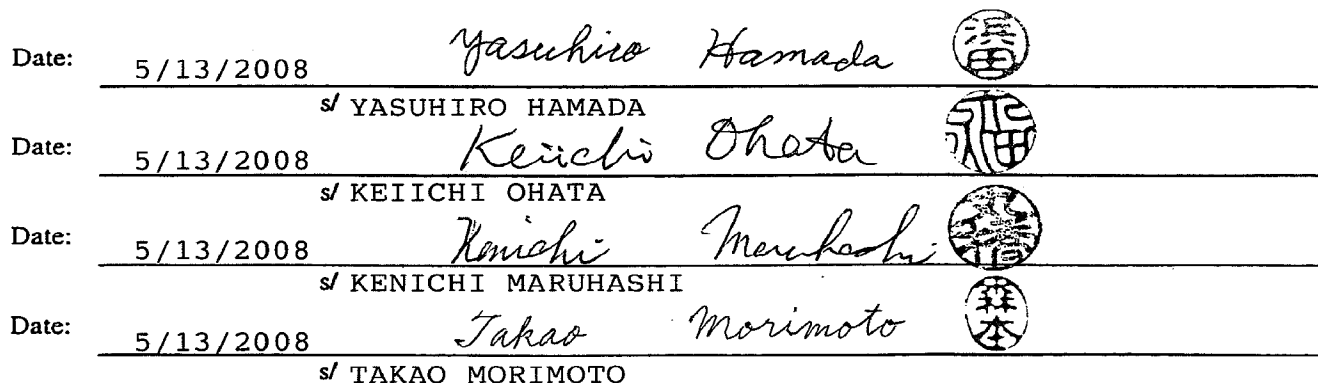 Date: 5/13/2008 Yasuhiro Hamada 浜田
s/ YASUHIRO HAMADA
Date: 5/13/2008 Keiichi Ohata
s/ KEIICHI OHATA
Date: 5/13/2008 Kenichi Maruhashi
s/ KENICHI MARUHASHI
Date: 5/13/2008 Takao Morimoto 森本
s/ TAKAO MORIMOTO